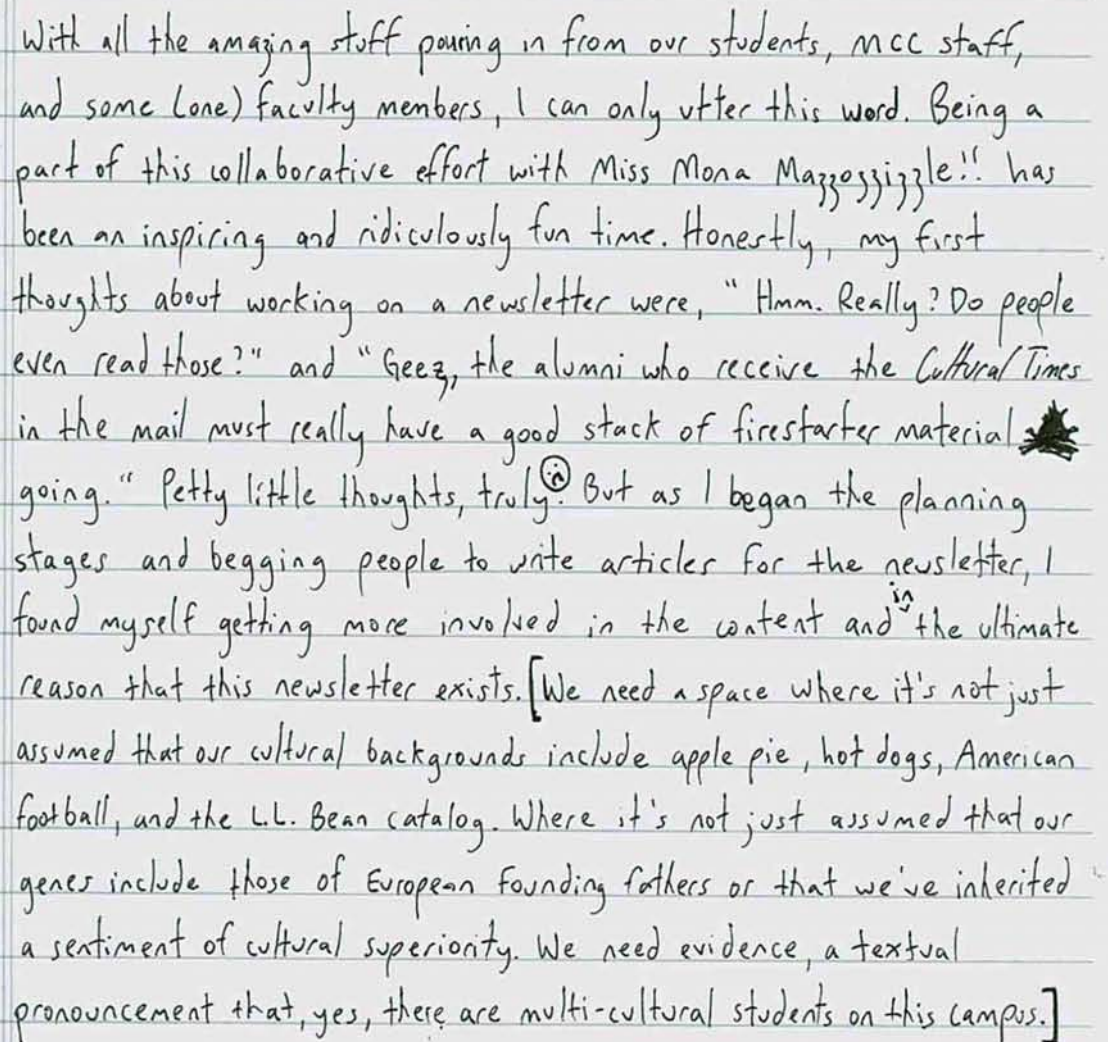 With all the amazing stuff pouring in from our students, MCC staff,
and some (one) faculty members, I can only utter this word. Being a
part of this collaborative effort with Miss Mona Mazzozzizzle!! has
been an inspiring and ridiculously fun time. Honestly, my first
thoughts about working on a newsletter were, "Hmm. Really? Do people
even read those?" and "Geez, the alumni who receive the Cultural Times
in the mail must really have a good stack of firestarter material
going." Petty little thoughts, truly. But as I began the planning
stages and begging people to write articles for the newsletter, I
found myself getting more involved in the content and in the ultimate
reason that this newsletter exists. [We need a space where it's not just
assumed that our cultural backgrounds include apple pie, hot dogs, American
football, and the L.L. Bean catalog. Where it's not just assumed that our
genes include those of European founding fathers or that we've inherited
a sentiment of cultural superiority. We need evidence, a textual
pronouncement that, yes, there are multi-cultural students on this campus.]